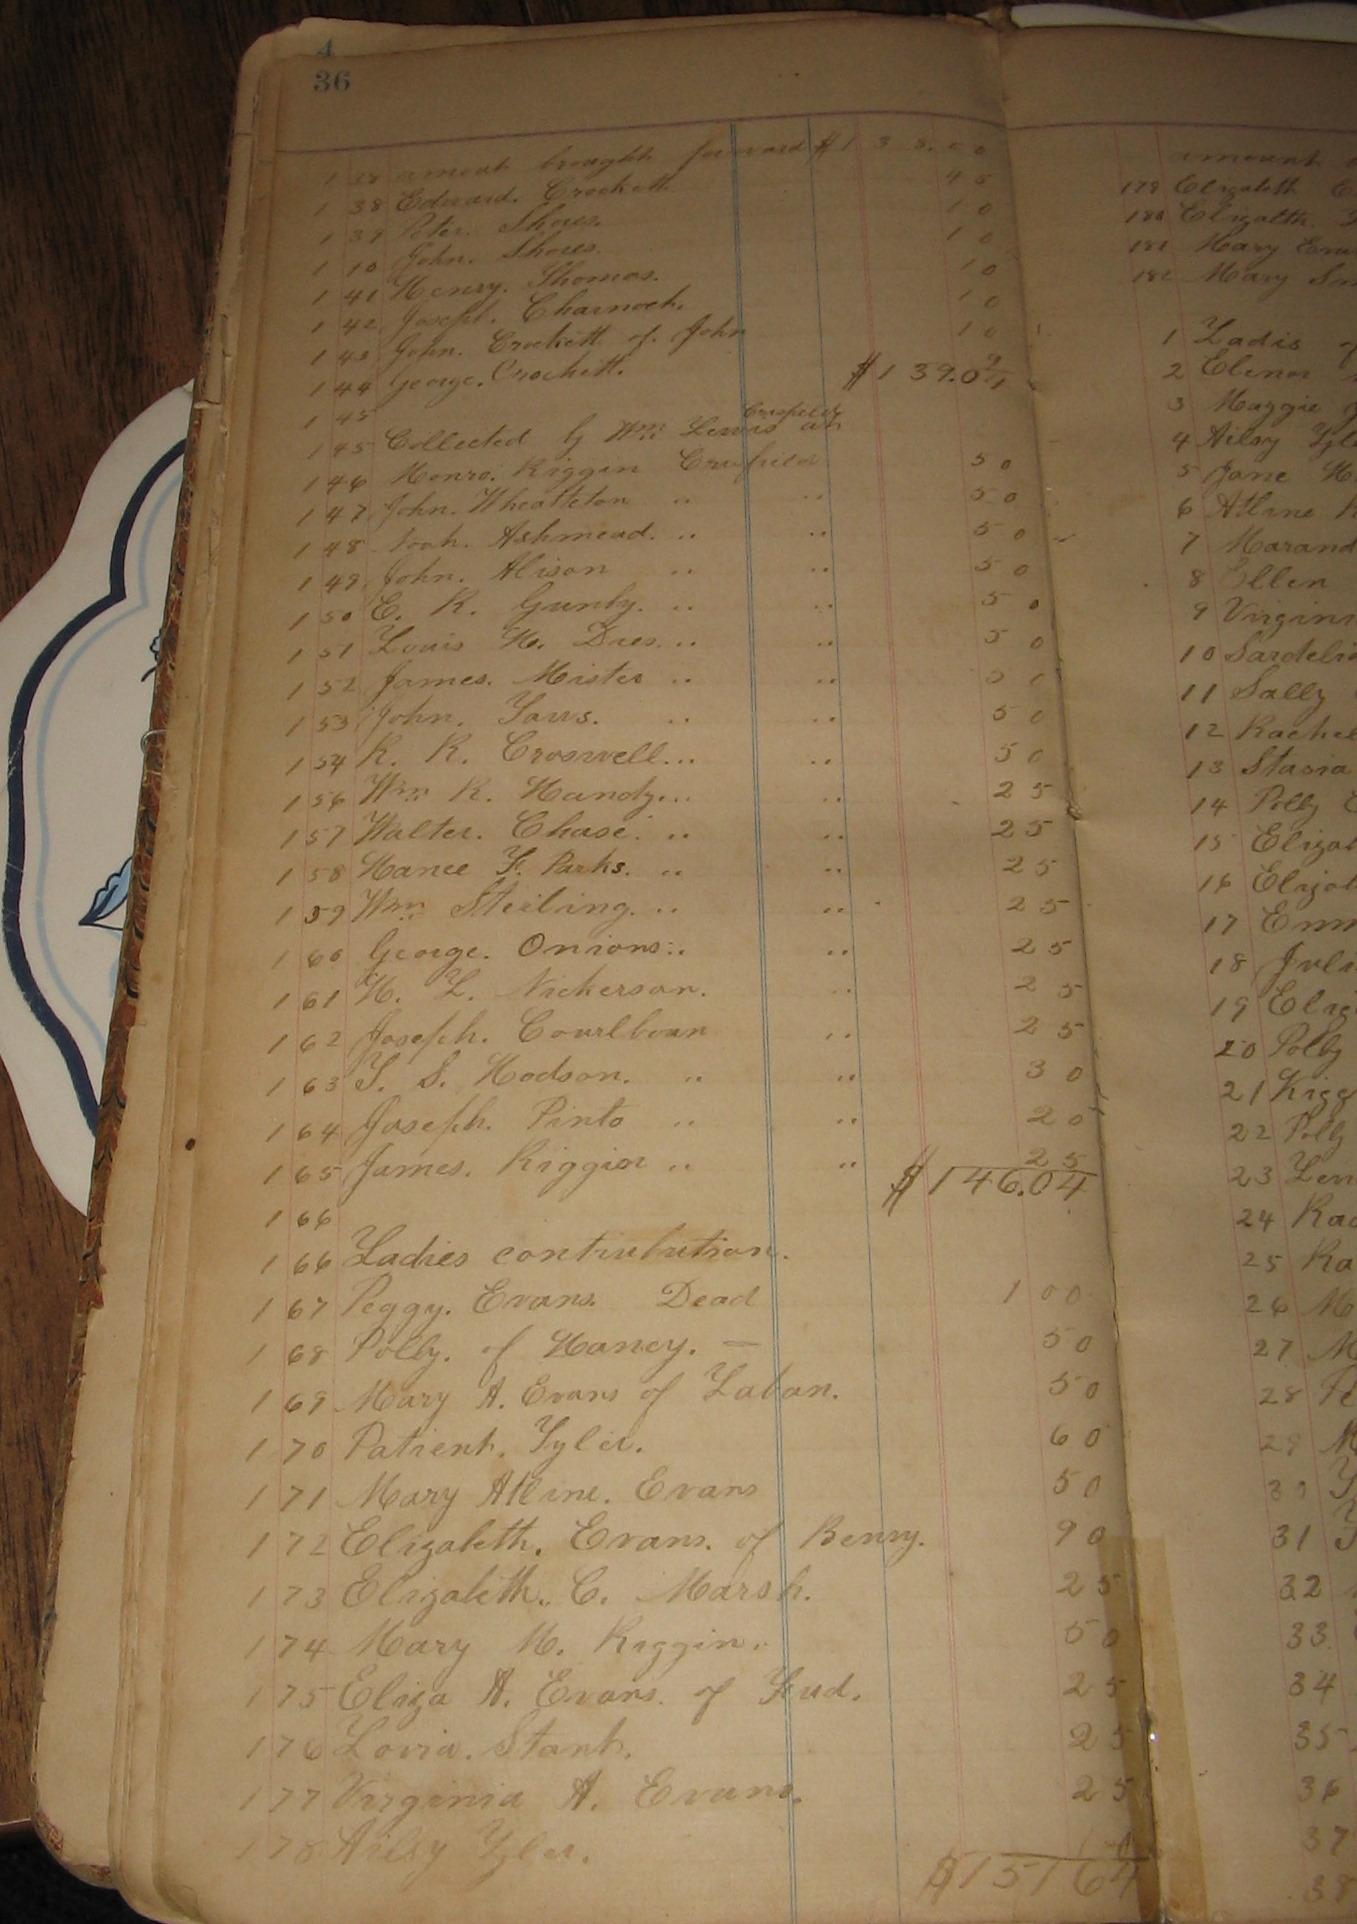 4
36
1 38 amout brought forward $1 3 8.
1 38 Edward. Crockett 4 5
1 39 Peter. Shores. 1 0
1 10 John. Shores. 1 0
1 41 Henry. Thomas. 1 0
1 42 Joseph. Charnock. 1 0
1 43 John. Crockett of. John 1 0
1 44 George. Crockett. $139.0
1 45
1 45 Collected by Wm Lewis at Crisfield
1 46 Monro. Riggin Crisfield 5 0
1 47 John. Wheatleton .. .. 5 0
1 48 Noah. Ashmead. .. .. 5 0
1 49 John. Alison .. .. 5 0
1 50 E. R. Gunby. .. .. 5 0
1 51 Louis H. Dies... .. 5 0
1 52 James. Mister .. ..
1 53 John. Taws. .. .. 5 0
1 54 R. R. Croswell... .. 5 0
1 56 Wm R. Handy... .. 2 5
1 57 Walter. Chase. .. .. 2 5
1 58 Hance F. Parks. .. .. 2 5
1 59 Wm Sterling. .. .. 2 5
1 60 George. Onions... .. 2 5
1 61 H. L. Nickerson. .. 2 5
1 62 Joseph. Courlboun .. 2 5
1 63 T. S. Hodson. .. .. 3 0
1 64 Joseph. Pinto .. .. 2 5
1 65 James. Riggin .. .. 2 5
1 66 $146.04
1 66 Ladies contribution.
1 67 Peggy. Evans. Dead 1 00
1 68 Polly. of Haney. — 5 0
1 69 Mary A. Evans of Laban. 5 0
1 70 Patient. Tyler. 6 0
1 71 Mary Alline. Evans 5 0
1 72 Elizabeth. Evans. of Benny. 9 0
1 73 Elizabeth. C. Marsh. 2 5
1 74 Mary M. Riggin. 5 0
1 75 Eliza A. Evans. of Fred. 2 5
1 76 Lovia. Stant. 2 5
1 77 Virginia A. Evans. 2 5
1 78 Ailsy Tyler.
$151 64
amount
179 Elizabeth
180 Elizabth
181 Mary Evan
182 Mary
1 Ladis of
2 Elenor
3 Maggie
4 Ailsy Tyle
5 Jane H.
6 Alline
7 Marand
8 Ellen
9 Virgini
10 Sardeli
11 Sally
12 Rachel
13 Stasia
14 Polly
15 Elizab
16 Elizab
17 Emm
18 Juli
19 Eliz
20 Polly
21 Kigg
22 Polly
23 Len
24 Rac
25 Ra
26 M
27 M
28
29 M
30
31
32
33
34
35
36
37
38